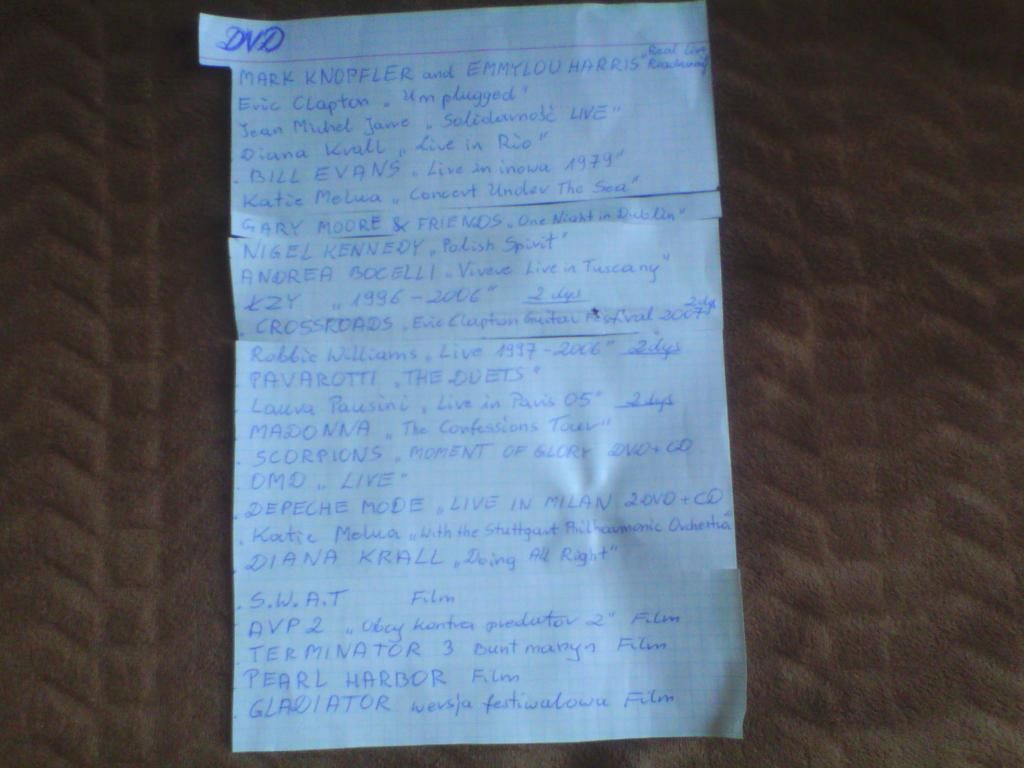 DVD
MARK KNOPFLER and EMMYLOU HARRIS "Real Live Roadrunning"
Eric Clapton „Umplugged"
Jean Michel Jarre „Solidarność LIVE"
Diana Krall „Live in Rio"
BILL EVANS „Live in inowa 1979"
Katie Melua „Concert Under The Sea"
GARY MOORE & FRIENDS „One Night in Dublin"
NIGEL KENNEDY „Polish Spirit"
ANDREA BOCELLI „Vivere Live in Tuscany"
ŁZY „1996-2006" 2 dys
CROSSROADS „Eric Clapton Guitar Festival 2007" 2 dys
Robbie Williams „Live 1997-2006" 2 dys
PAVAROTTI „THE DUETS"
Laura Pausini „Live in Paris 05" 2 dys
MADONNA „The Confessions Tour"
SCORPIONS „MOMENT OF GLORY DVD+CD
OMD „LIVE"
DEPECHE MODE „LIVE IN MILAN 2DVD+CD
Katie Melua „With the Stuttgart Philharmonic Orchestra"
DIANA KRALL „Doing All Right"
S.W.A.T Film
AVP2 „Obcy kontra predator 2" Film
TERMINATOR 3 Bunt maszyn Film
PEARL HARBOR Film
GLADIATOR wersja festiwalowa Film